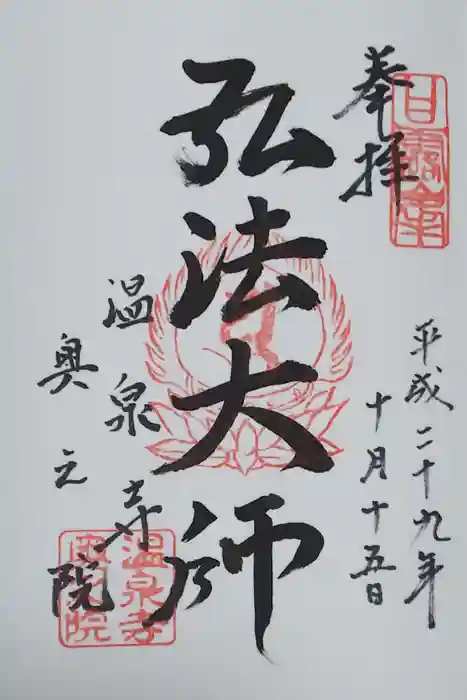 奉拝
平成二十九年
十月十五日
弘法大師
温泉寺
奥之院
甘露山
温泉寺
奥之院